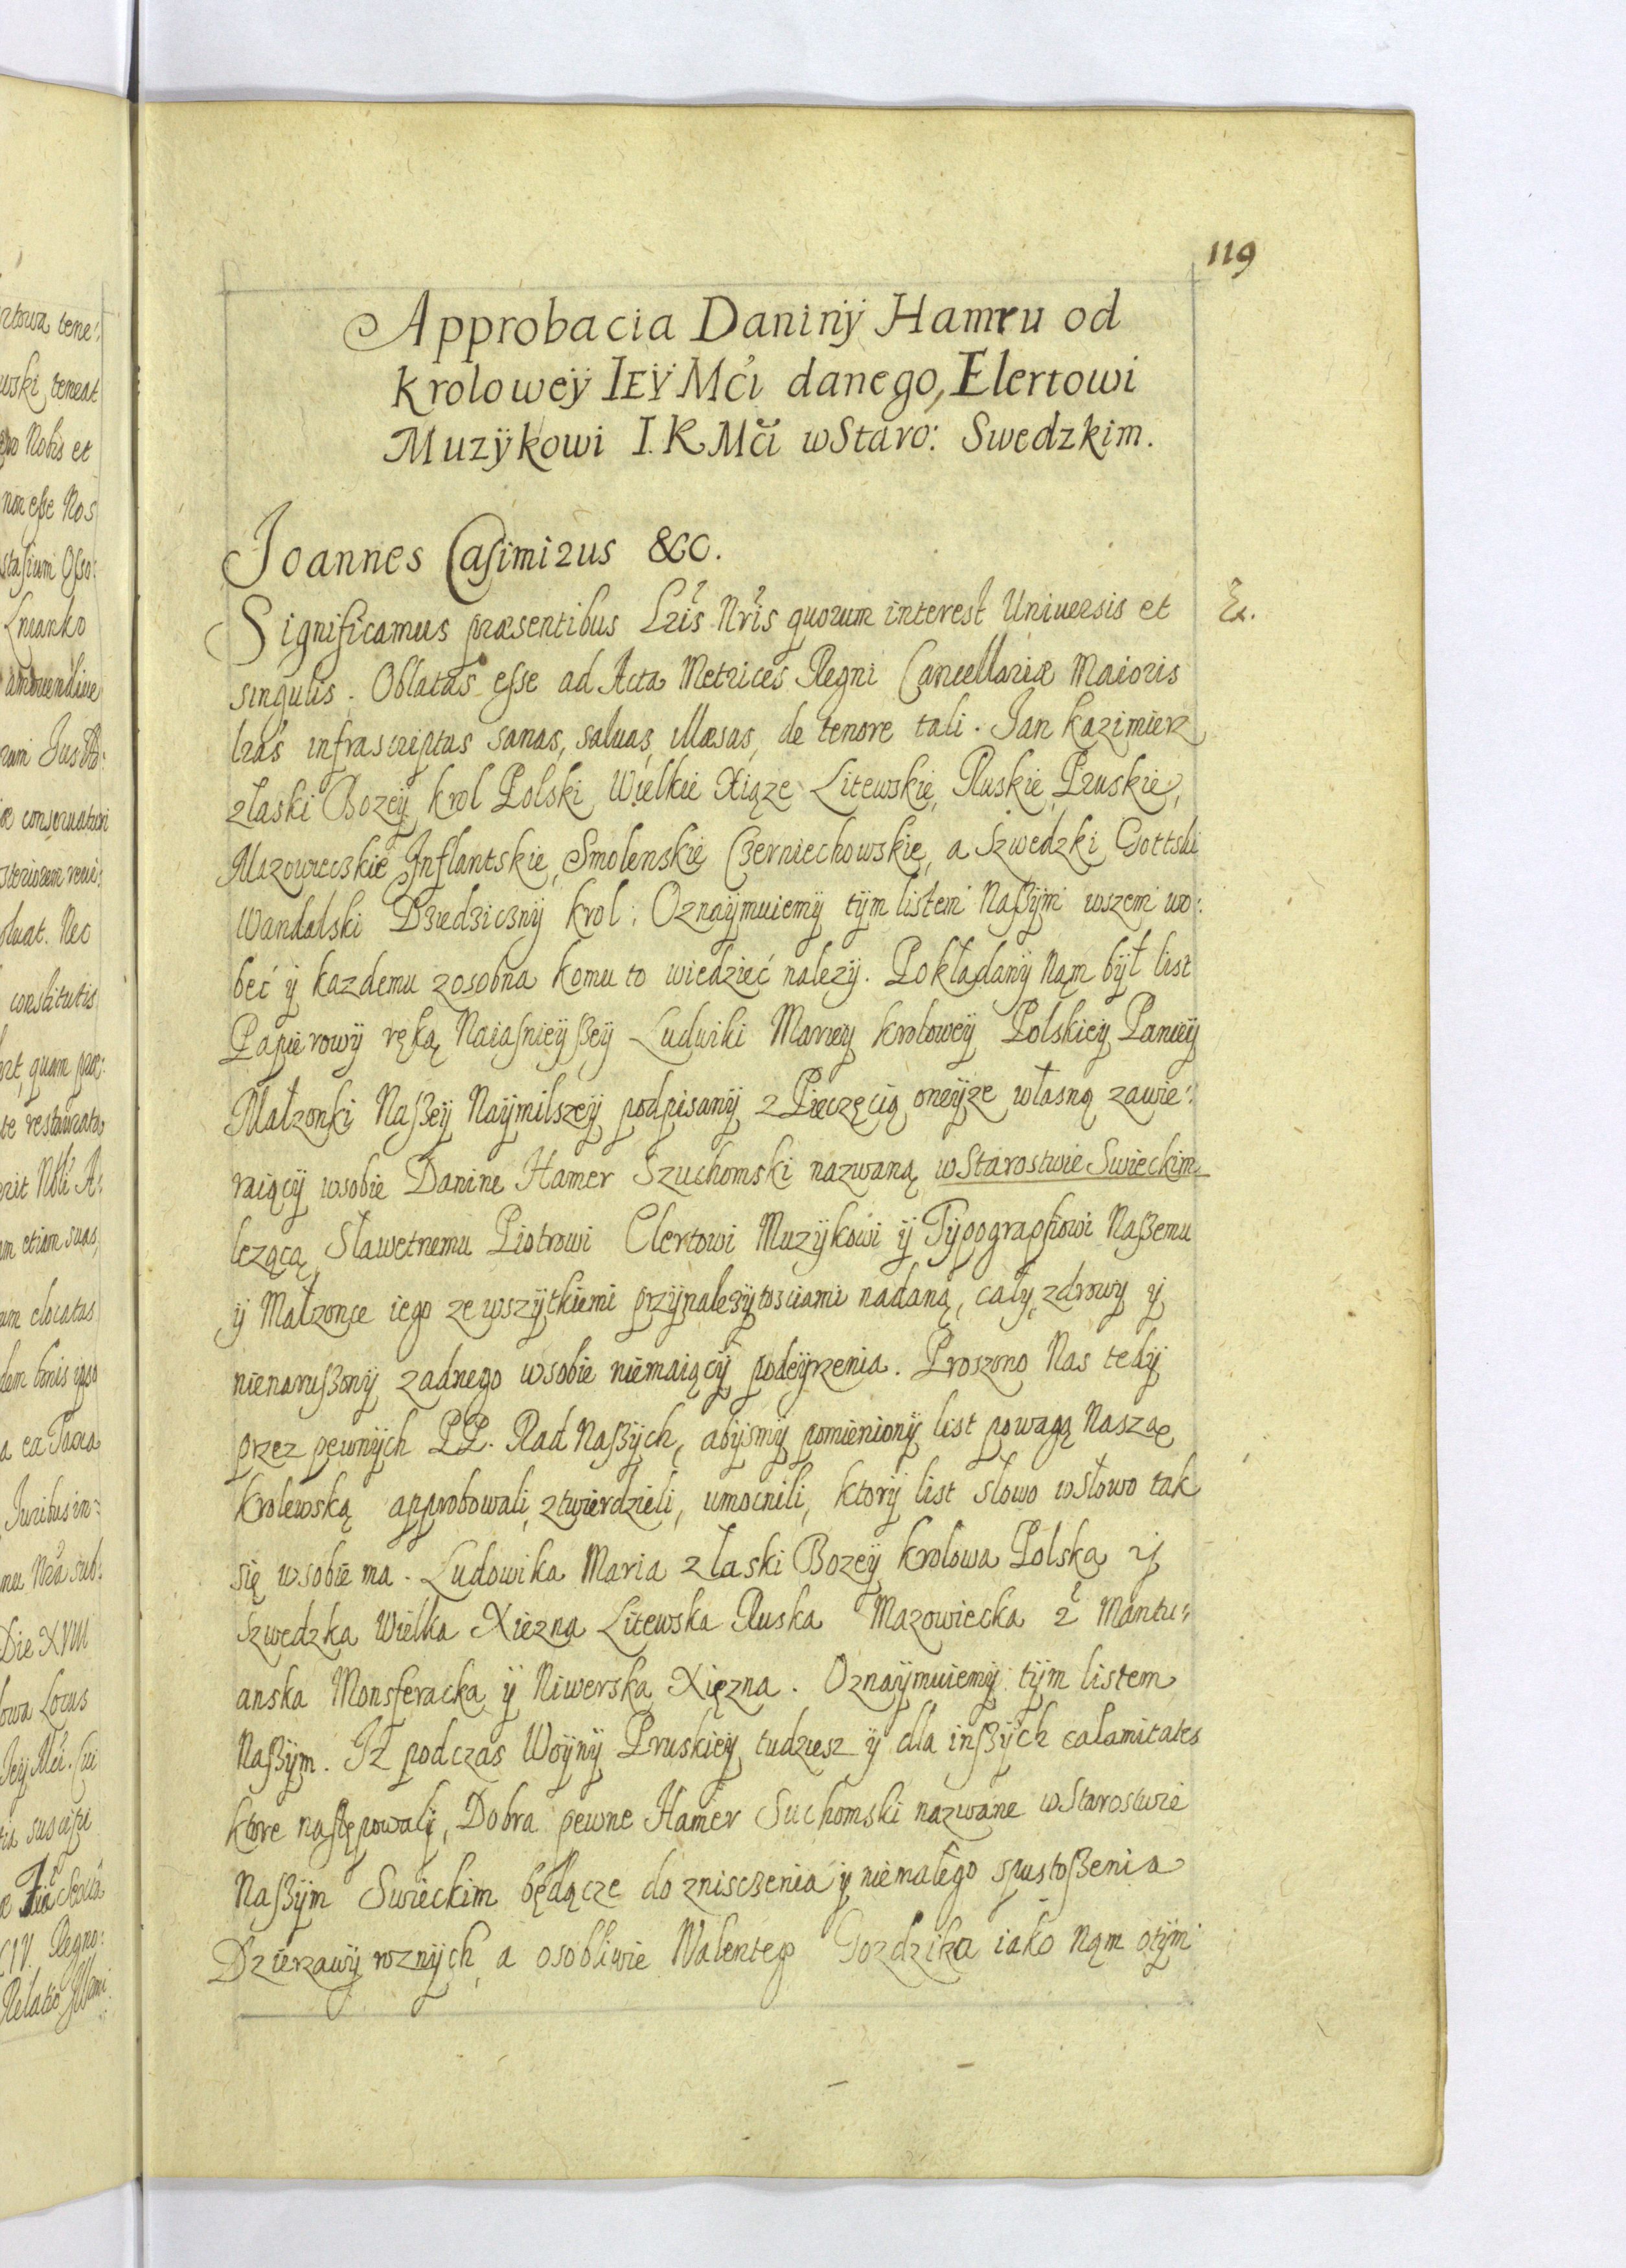 119
Approbacia Daninÿ Hamru od
kroloweÿ IEŸ Mći danego, Elertowi
Muzÿkowi I. K Mči wStaro: Swedzkim.
Joannes Casimirus &c.
Significamus præsentibus Lris Nris quorum interest Uniuersis et
Ex.
singulis. Oblatas esse ad Acta Metrices Regni Cancellariæ Maioris
lras infrascriptas sanas, saluas, illæsas, de tenore tali. Jan kazimierz
złaski Bozeÿ krol Polski Wielkie Xiąze Litewskie, Ruskie, Pruskie,
Mazowieckie Jnflantskie, Smolenskie Czerniechowskie, a Szwedzki Gottski
Wandalski Dziedzicznÿ krol: Oznaÿmuiemÿ tÿm listem Naßÿm wszem wo:
bec ÿ kazdemu zosobna komu to wiedzieć nalezÿ. Pokładanÿ Nąm bÿł list
Papierowÿ ręką Naiasnieÿßeÿ Ludwiki Marieÿ kroloweÿ Polskieÿ Panieÿ
Małzonki Naßeÿ Naÿmilszeÿ podpisanÿ z Pieczęcią oneÿze własną zawie:
raiącÿ wsobie Danine Hamer Szuchomski nazwaną wStarostwie Swieckim
lezącą Sławetnemu Piotrowi Elertowi Muzÿkowi ÿ Tÿpographowi Naßemu
ÿ Małzonce iego ze wszÿtkiemi przÿnalezÿtosciami nadaną, całÿ, zdrowÿ ÿ
nienarußonÿ zadnego wsobie niemaiącÿ podeÿrzenia. Proszono Nas tedÿ
przez pewnÿch PP. Rad Naßÿch, abÿsmÿ pomienionÿ list powagą Naszą
krolewską approbowali, ztwierdzieli, umocnili, ktorÿ list słowo wsłowo tak
się wsobie ma. Ludowika Maria złaski Bozeÿ krolowa Polska ÿ
Szwedzka Wielka Xiezna Litewska Ruska Mazowiecka z Mantu:
anska Monsferacka ÿ Niwerska Xięzna. Oznaÿmuiemÿ tÿm listem
Naßÿm. Jz podczas Woÿnÿ Pruskieÿ tudziesz ÿ dla inßÿch calamitates
ktore następowali, Dobra pewne Hamer Suchomski nazwane wStarostwie
Naßÿm Swieckim będącze do znisczenia ÿ niemałego spustoßenia
Dzierzawÿ roznÿch, a osobliwie Walentego Gozdzika iako Nąm otÿm